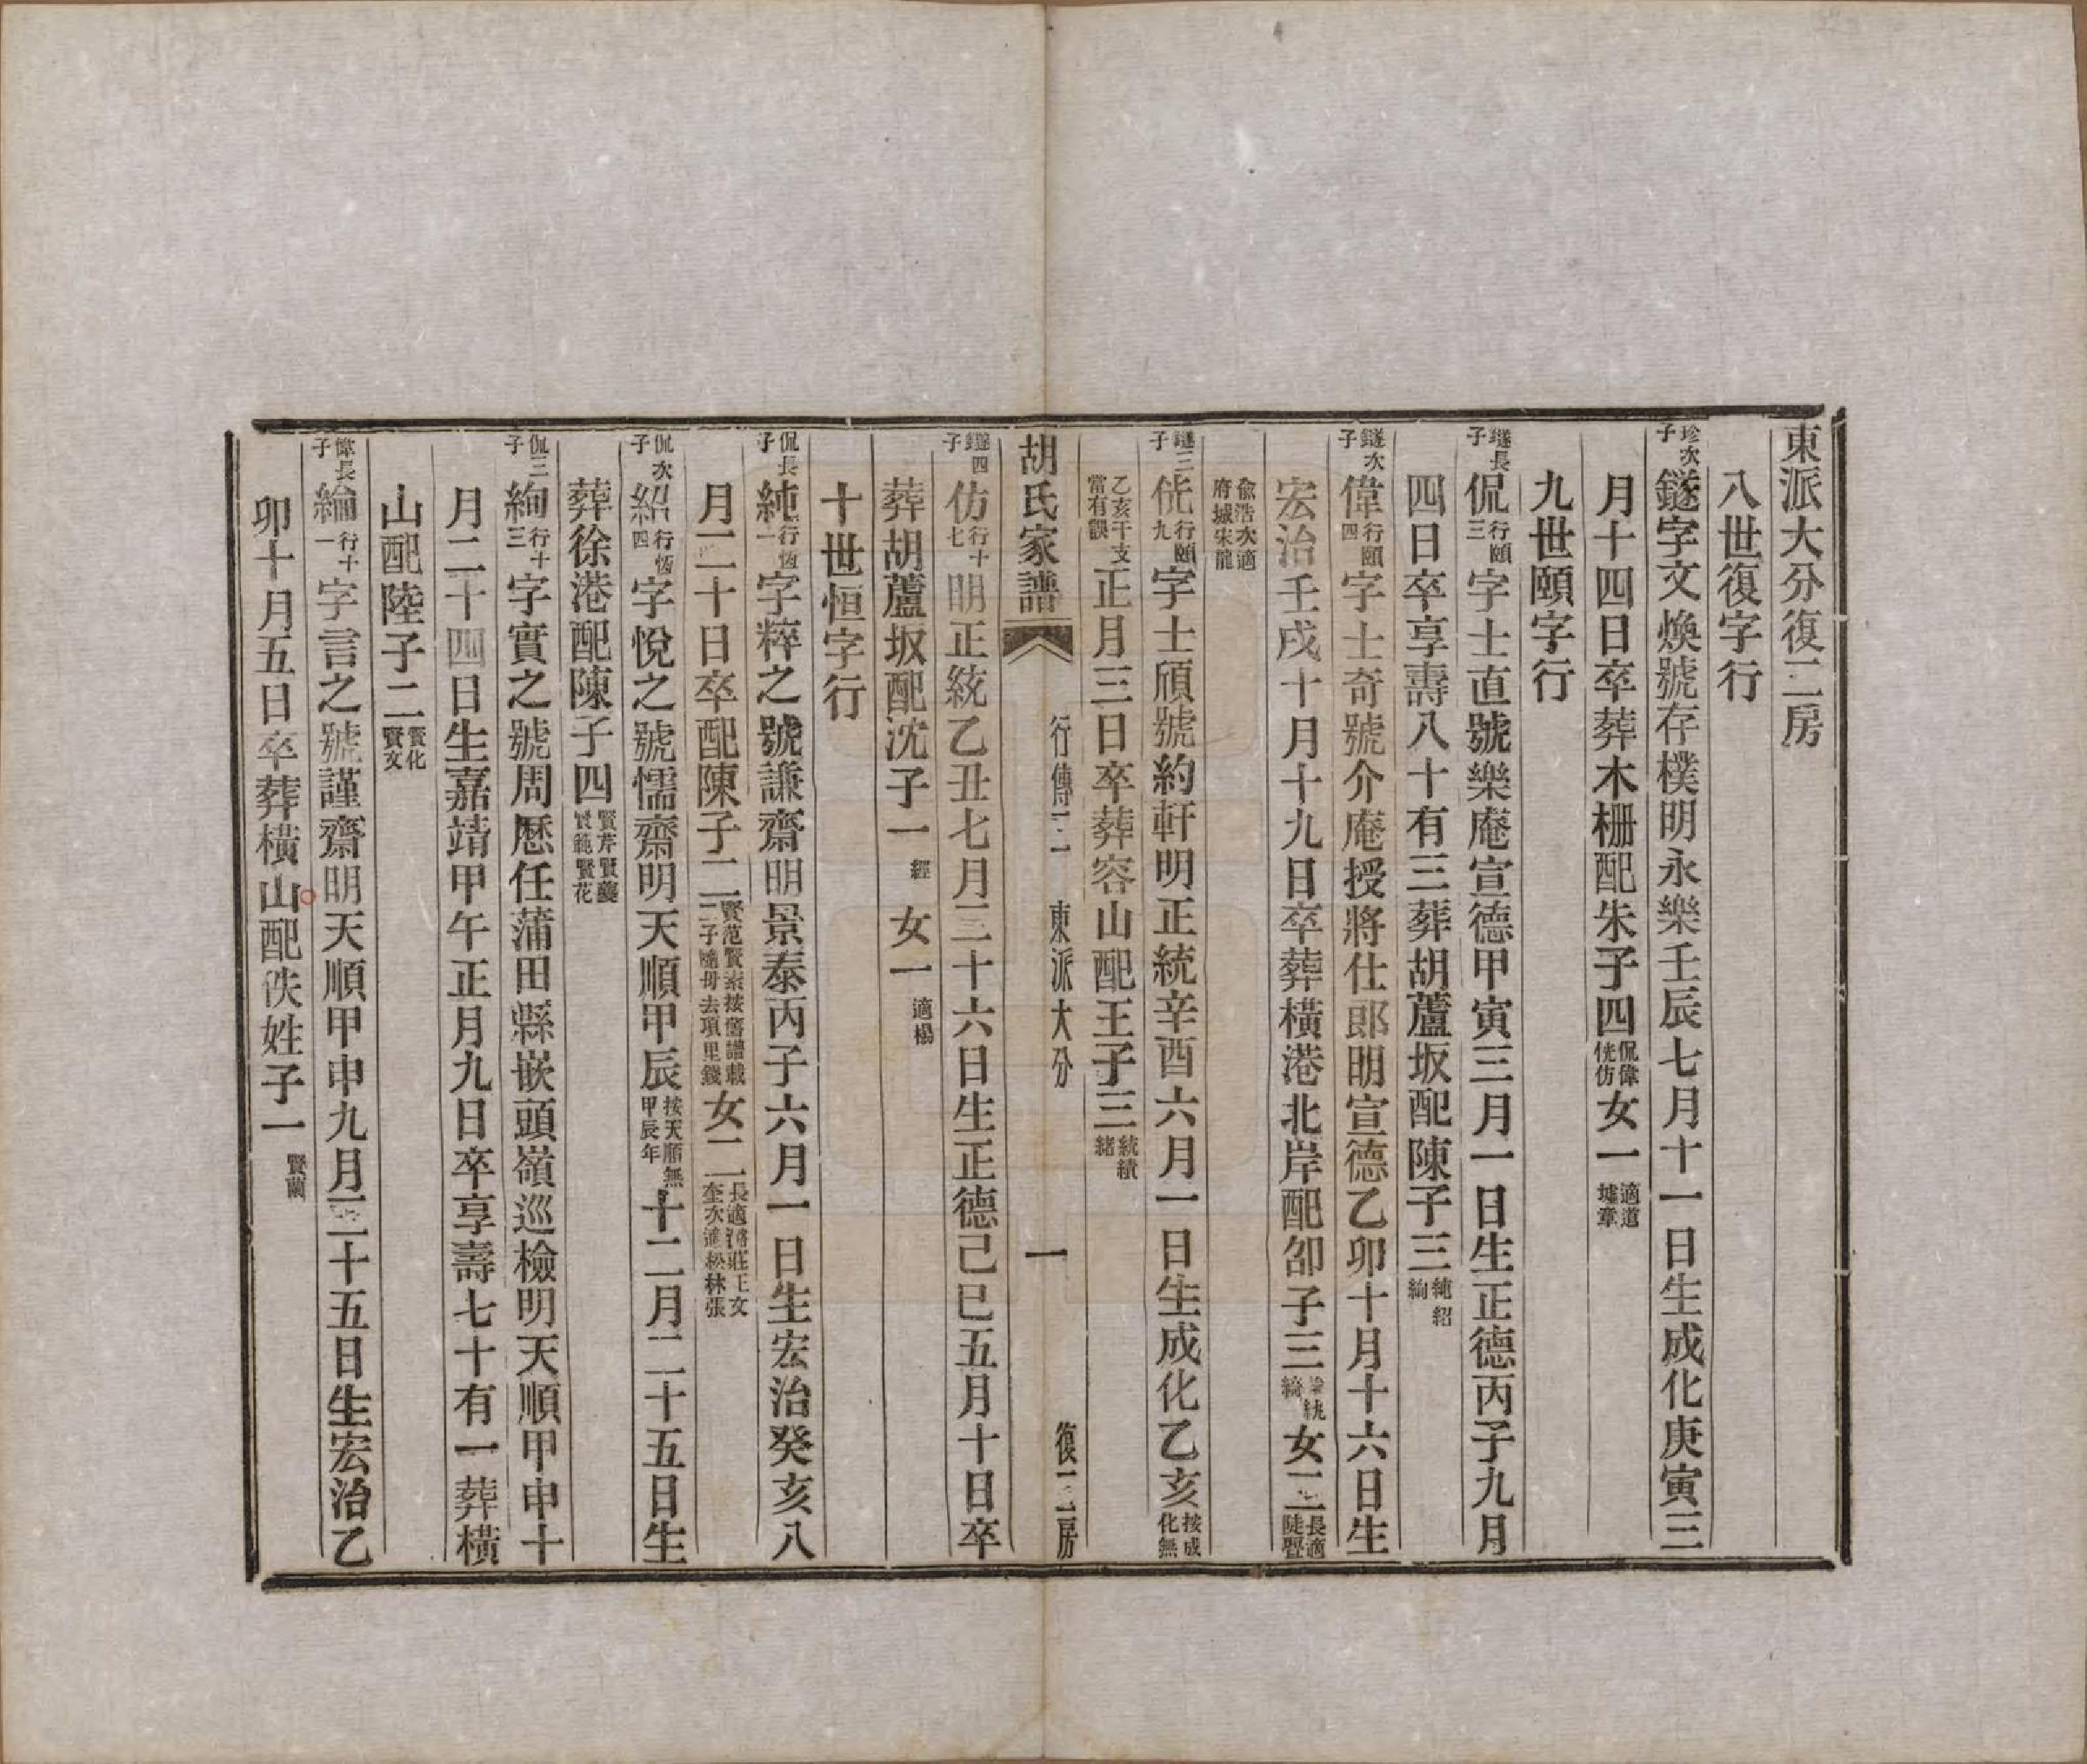 東派大分復二房
八世復字行
珍次子鐩字文煥號存樸明永樂壬辰七月十一日生成化庚寅三
月十四日卒葬木柵配朱子四侃偉侊仿女一適道墟章
九世頤字行
鐩長子侃行頤三字士直號樂庵宣德甲寅三月一日生正德丙子九月
四日卒享壽八十有三葬胡蘆坂配陳子三純紹絢
鐩次子偉行頤四字士奇號介庵授將仕郎明宣德乙卯十月十六日生
宏治壬戌十月十九日卒葬橫港北岸配卲子三綸絩綺女二長適陡亹
兪浩次適府城宋龍
鐩三子侊行頤九字士頎號約軒明正統辛酉六月一日生成化乙亥按成化無
乙亥干支當有誤正月三日卒葬容山配王子三統績緒
胡氏家譜 行傳二 東派大分 一 復二房
鐩四子仿行十七明正統乙丑七月二十六日生正德己巳五月十日卒
葬胡蘆坂配沈子一經女一適楊
十世恒字行
侃長子純行恆一字粹之號謙齋明景泰丙子六月一日生宏治癸亥八
月二十日卒配陳子二賢范賢素按舊譜載二子隨母去項里錢女二長適漓莊王文奎次適松林張
侃次子紹行恆四字悅之號懦齋明天順甲辰按天順無甲辰年十二月二十五日生
葬徐港配陳子四賢芹賢夔賢範賢花
侃三子絢行十三字實之號周歷任蒲田縣嵌頭嶺巡檢明天順甲申十
月二十四日生嘉靖甲午正月九日卒享壽七十有一葬橫
山配陸子二賢化賢文
偉長子綸行十一字言之號謹齋明天順甲申九月二十五日生宏治乙
卯十月五日卒葬橫山配佚姓子一賢蘭